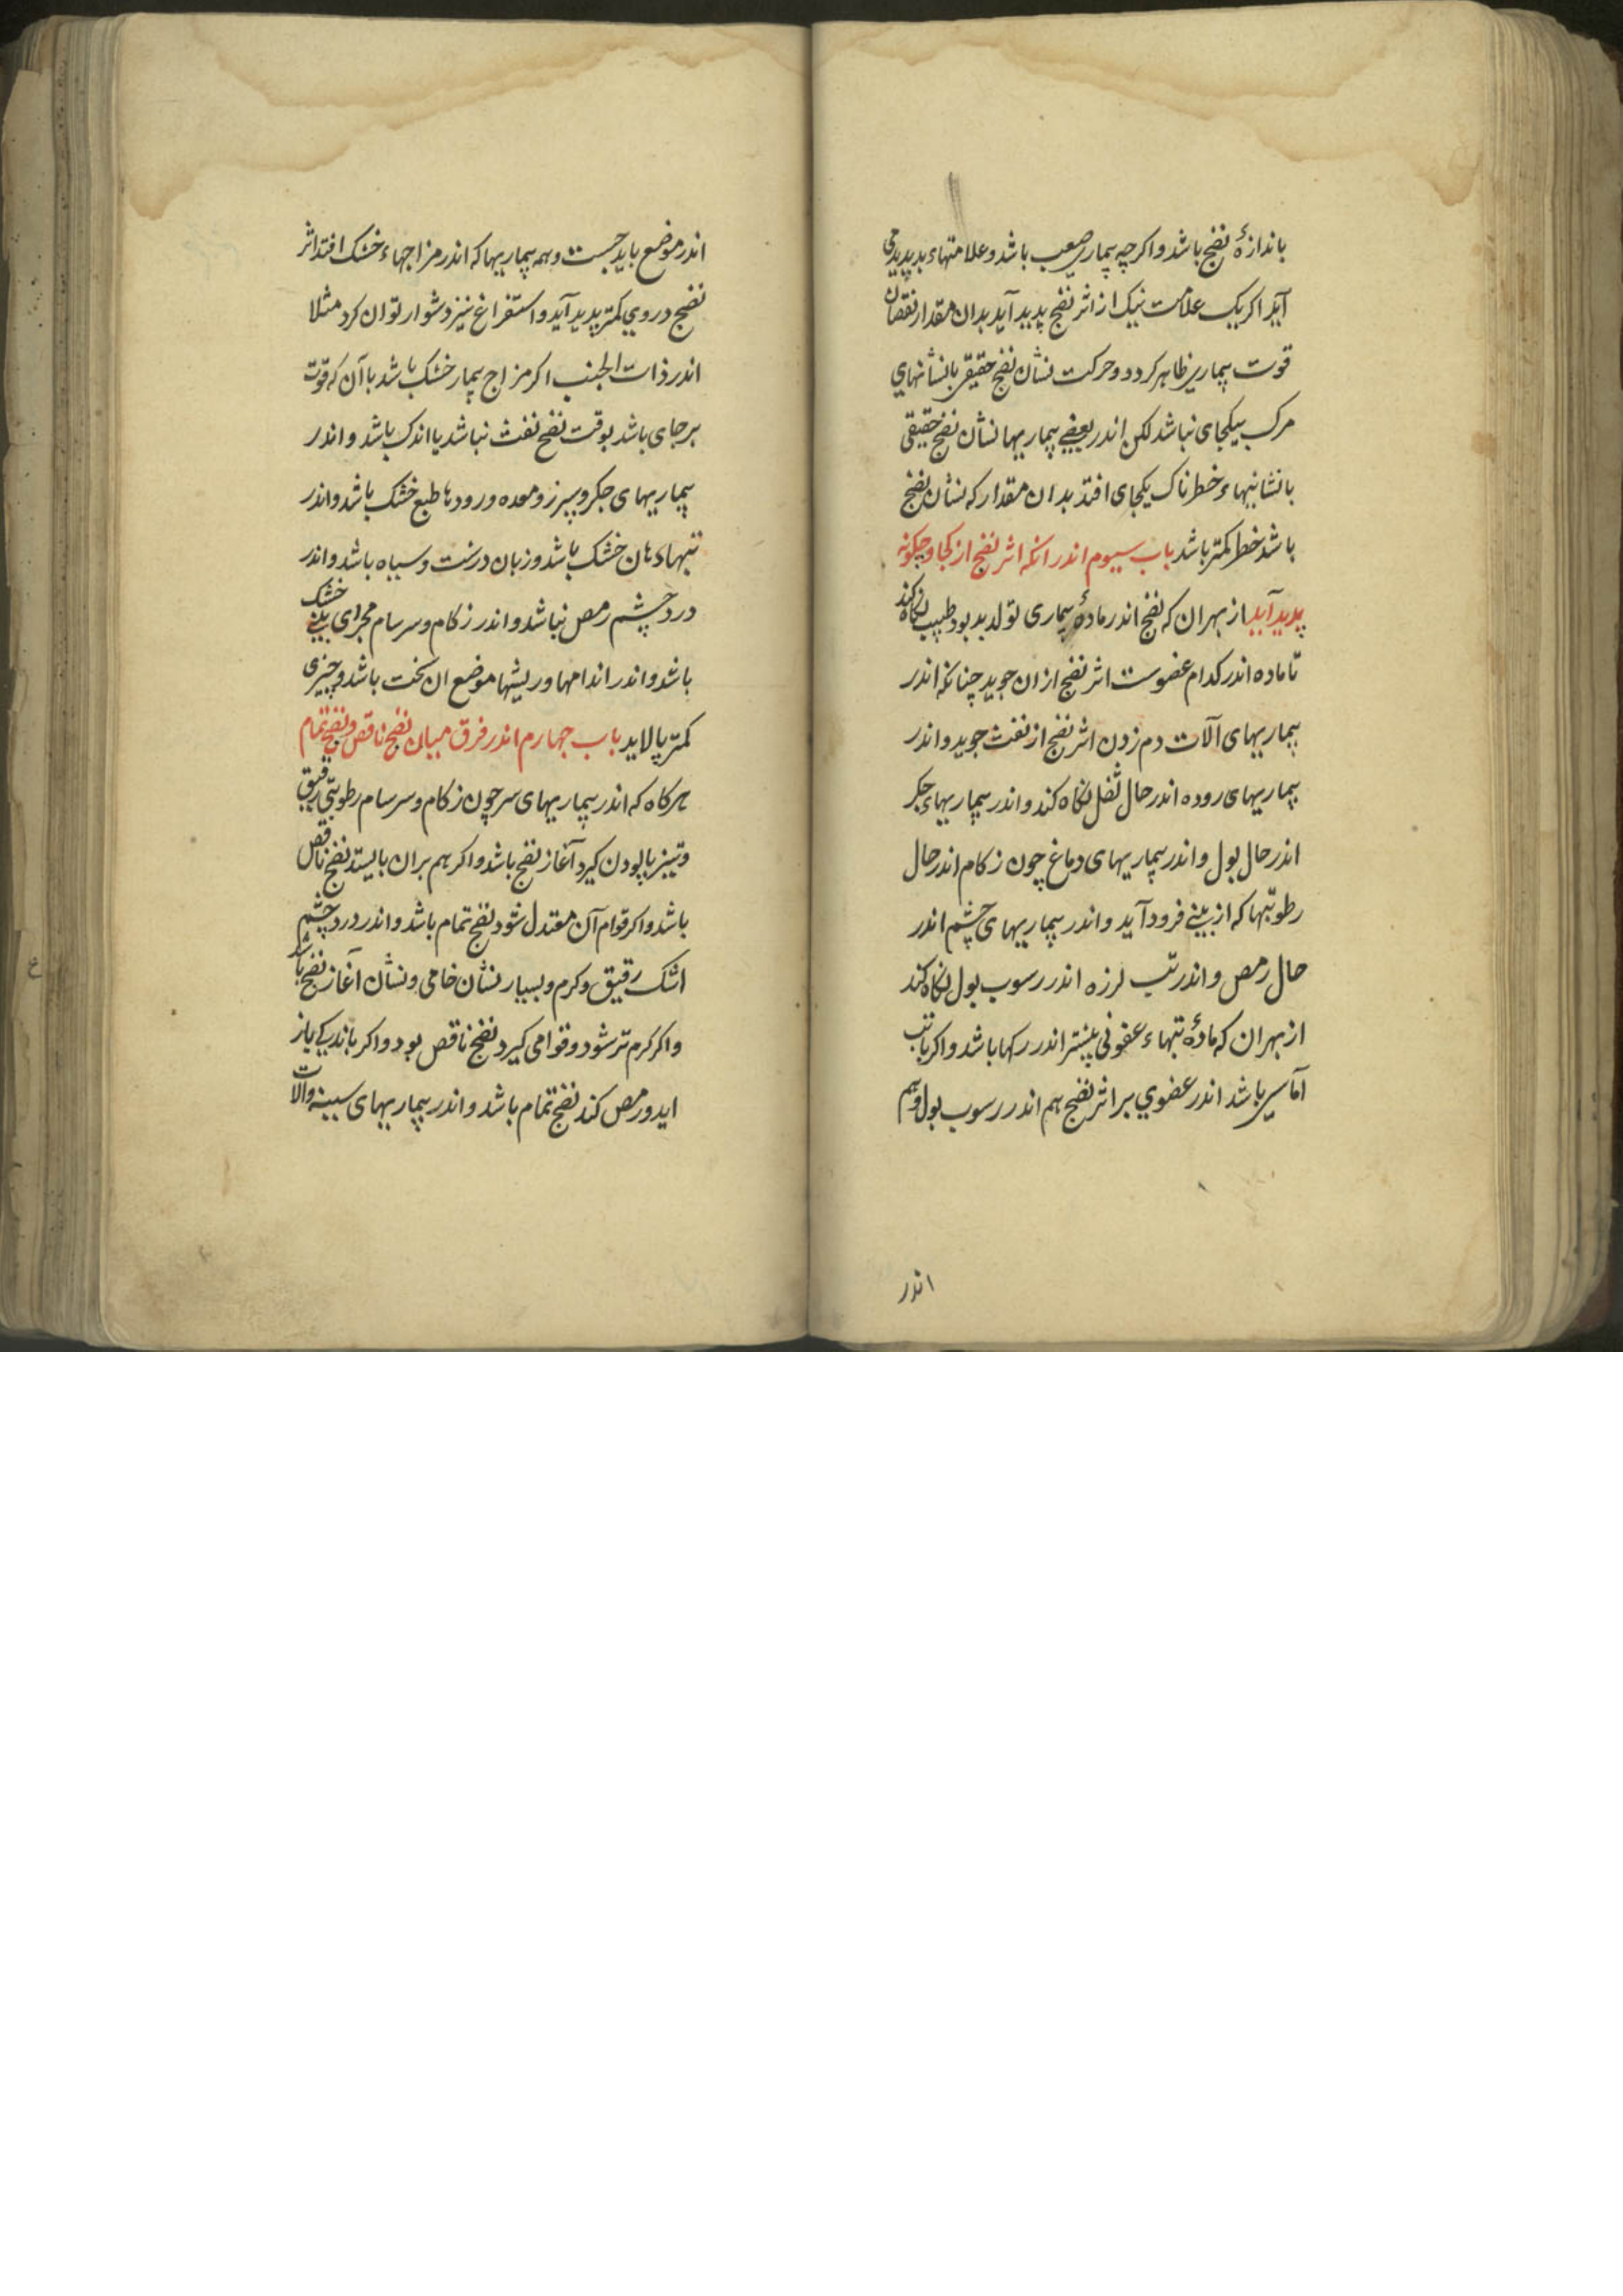 باندازهٔ نضج باشد واکر چه بیماری صعب باشد وعلامتهاء بد پدید می
آید اکر یک علامت نیک از اثر نضج پدید آید بدان مقدار نقصان
قوت بیماری ظاهر کردد وحرکت نشان نضج حقیقی با نشانهای
مرک بیکجای نباشد لکن اندر بعضی بیماریها نشان نضج حقیقی
با نشانیهاء خطرناک یکجای افتد بدان مقدار که نشان نضج
باشد خطر کمتر باشد باب سیوم اندر انکه اثر نضج از کجا وچکونه
پدید آید از بهر ان که نضج اندر مادهٔ بیماری تولد بود طبیب نکاه کند
تا ماده اندر کدام عضوست اثر نضج ازان جوید چنانکه اندر
بیماریهای آلات دم زدن اثر نضج از نفث جوید واندر
بیماریهای روده اندر حال ثفل نکاه کند واندر بیماریهاء جکر
اندر حال بول واندر بیماریهای دماغ چون زکام اندر حال
رطوبتها که از بینی فرود آید واندر بیماریهای چشم اندر
حال رمص واندر تب لرزه اندر رسوب بول نکاه کند
از بهر ان که مادهٔ تبهاء عفونی بیشتر اندر رکها باشد واکر با تب
آماسی باشد اندر عضوی بر اثر نضج هم اندر رسوب بول وهم
اندر
اندر موضع باید جست وهمه بیماریها که اندر مزاجهاء خشک افتد اثر
نضج دروی کمتر پدید آید واستفراغ نیز دشوار توان کرد مثلا
اندر ذات الجنب اکر مزاج بیمار خشک باشد با آن که قوت
بر جای باشد بوقت نضج نفث نباشد یا اندک باشد واندر
بیماریهای جکر وسپرز ومعده ورودها طبع خشک باشد واندر
تبها دهان خشک باشد وزبان درشت وسیاه باشد واندر
درد چشم رمص نباشد واندر زکام وسرسام مجرای بینی خشک
باشد واندر اندامها وریشها موضع ان سخت باشد وچیزی
کمتر پالاید باب چهارم اندر فرق میان نضج ناقص ونضج تمام
هرکاه که اندر بیماریهای سر چون زکام وسرسام رطوبتی رقیق
وتیز پالودن کیرد آغاز نضج باشد واکر هم بران بایستد نضج ناقص
باشد واکر قوام آن معتدل شود نضج تمام باشد واندر درد چشم
اشک رقیق وکرم وبسیار نشان خامی ونشان آغاز نضج باشد
واکر کرم تر شود وقوامی کیرد نضج ناقص بود واکر باندکی باز
اید ورمص کند نضج تمام باشد واندر بیماریهای سینه وآلات